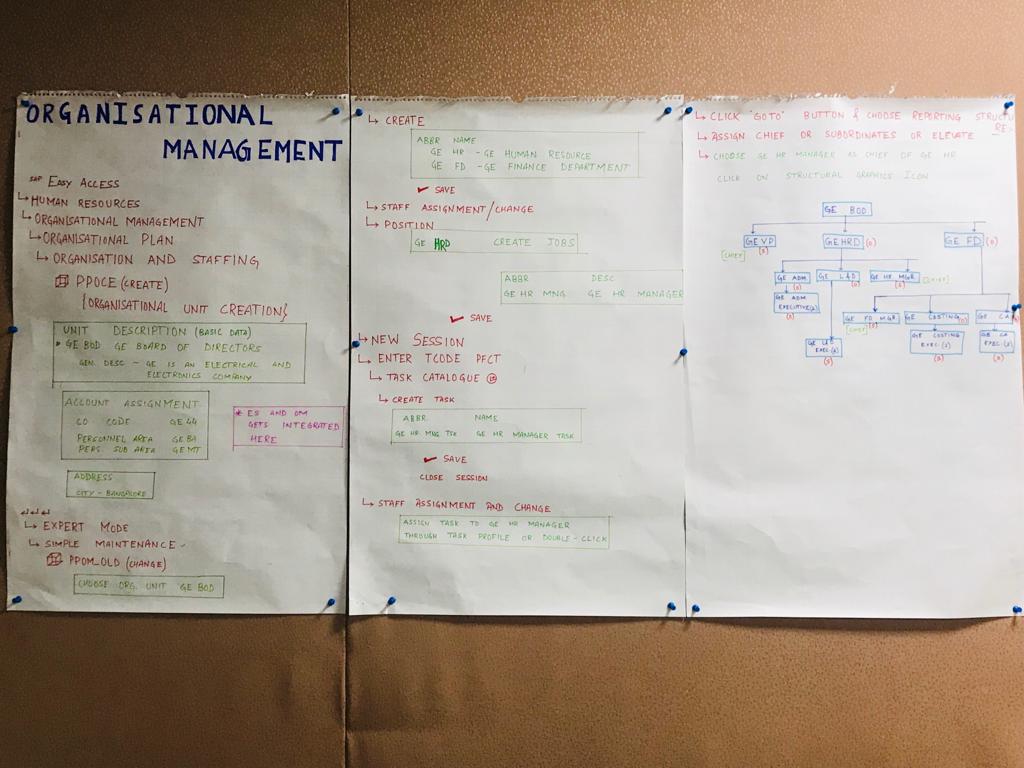 ORGANISATIONAL
MANAGEMENT
SAP EASY ACCESS
HUMAN RESOURCES
ORGANISATIONAL MANAGEMENT
ORGANISATIONAL PLAN
ORGANISATION AND STAFFING
PPOCE (CREATE)
{ORGANISATIONAL UNIT CREATION}
UNIT DESCRIPTION (BASIC DATA)
* GE BOD GE BOARD OF DIRECTORS
GEN. DESC - GE IS AN ELECTRICAL AND
ELECTRONICS COMPANY
ACCOUNT ASSIGNMENT
CO CODE GE 44
PERSONNEL AREA GE BA
PERS. SUB AREA GE MT
* ES AND OM
GETS INTEGRATED
HERE
ADDRESS
CITY - BANGALORE
EXPERT MODE
SIMPLE MAINTENANCE -
PPOM_OLD (CHANGE)
CHOOSE ORG. UNIT GE BOD
CREATE
ABBR NAME
GE HR - GE HUMAN RESOURCE
GE FD - GE FINANCE DEPARTMENT
SAVE
STAFF ASSIGNMENT/CHANGE
POSITION
GE HRD CREATE JOBS
ABBR DESC
GE HR MNG GE HR MANAGER
SAVE
NEW SESSION
ENTER TCODE PFCT
TASK CATALOGUE
CREATE TASK
ABBR. NAME
GE HR MNG TSK GE HR MANAGER TASK
SAVE
CLOSE SESSION
STAFF ASSIGNMENT AND CHANGE
ASSIGN TASK TO GE HR MANAGER
THROUGH TASK PROFILE OR DOUBLE-CLICK
CLICK 'GOTO' BUTTON & CHOOSE REPORTING STRUCTU
RE
ASSIGN CHIEF OR SUBORDINATES OR ELEVATE
CHOOSE GE HR MANAGER AS CHIEF OF GE HR
CLICK ON STRUCTURAL GRAPHICS ICON
GE BOD
GE VP GE HRD (O) GE FD (O)
(S)
[CHIEF]
GE ADM GE L&D GE HR MGR [CHIEF]
(S) (O) (S)
GE ADM
EXECUTIVE(S)
(S)
GE FD MGR GE COSTING(O) GE CA
[CHIEF] (S)
GE COSTING
EXEC.(S)
(S)
GE CA
EXEC.(S)
(S)
EXEC.(S)
(S)